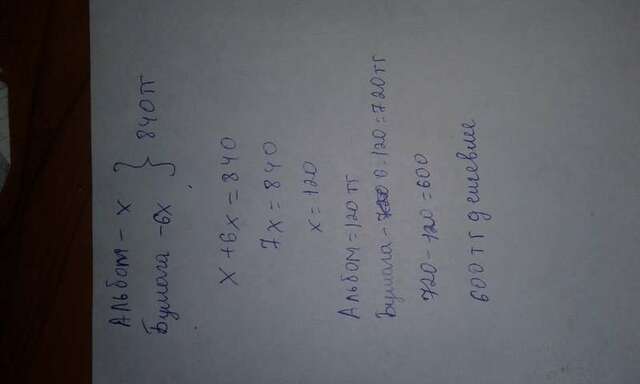 Альбом - x } 840тг
Бумага - 6x
x + 6x = 840
7x = 840
x = 120
Альбом = 120 тг
Бумага - 6·120 = 720тг
720 - 120 = 600
600 тг дешевле